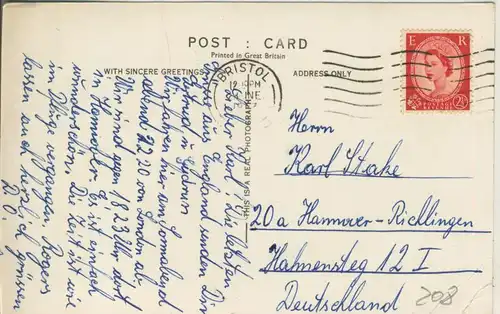 POST : CARD
Printed in Great Britain
WITH SINCERE GREETINGS
ADDRESS ONLY
THIS IS A REAL PHOTOGRAPH
BRISTOL
12 PM
JNE
E R
POSTAGE REVENUE
2½
Lieber Karl! Die letzten
aus England senden Dir
Wir fahren hier am Sonnabend
abend 21.20 von London ab.
Wir sind gegen 18.23 Uhr dort
in Hannover. Es ist einfach
wunderschön. Die Zeit ist wie
im Fluge vergangen. Rogers
lassen auch herzlich grüssen
Herrn
Karl Stake
20a Hannover-Ricklingen
Hahnensteg 12 I
Deutschland
208